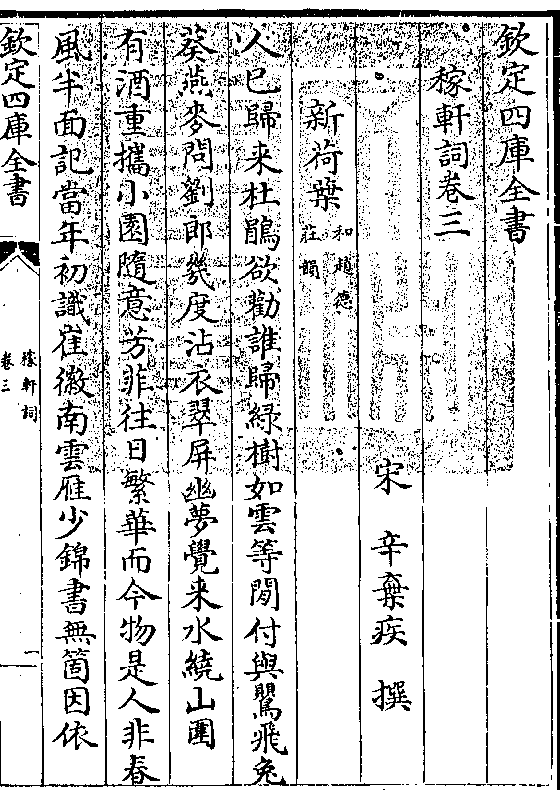 欽定四庫全書
稼軒詞卷三
宋 辛棄疾 撰
新荷葉 和趙德莊韻
人已歸来杜鵑欲勸誰歸緑樹如雲等閒付與鶯飛兔
葵燕麥問劉郎幾度沾衣翠屏幽夢覺来水繞山圍
有酒重攜小園隨意芳菲往日繁華而今物是人非春
風半面記當年初識崔徽南雲雁少錦書無箇因依
欽定四庫全書
稼軒詞
卷三
一